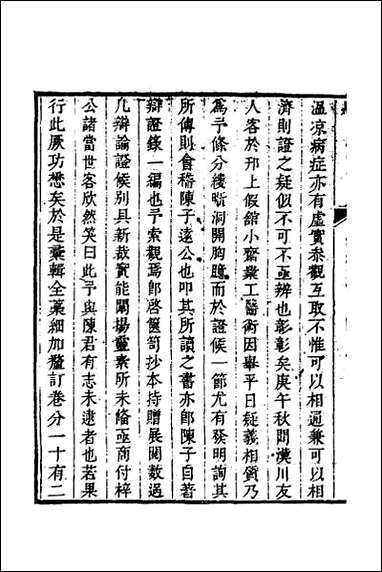 溫凉病症亦有虛實叅觀互取不惟可以相通兼可以相
濟則證之疑似不可不亟辨也彰彰矣庚午秋間漢川友
人客於邗上假舘小齋業工醫術因舉平日疑義相質乃
爲予條分縷晰洞開胸臆而於證候一節尤有發明詢其
所傳則會稽陳子遠公也叩其所讀之書亦卽陳子自著
辯證錄一編也予索觀焉卽啓篋笥抄本持贈展閱數過
凢辯論證候别具新裁實能闡揚靈素所未備亟商付梓
公諸當世客欣然笑曰此予與陳君有志未逮者也若果
行此厥功懋矣於是彚輯全藁細加釐訂卷分一十有二